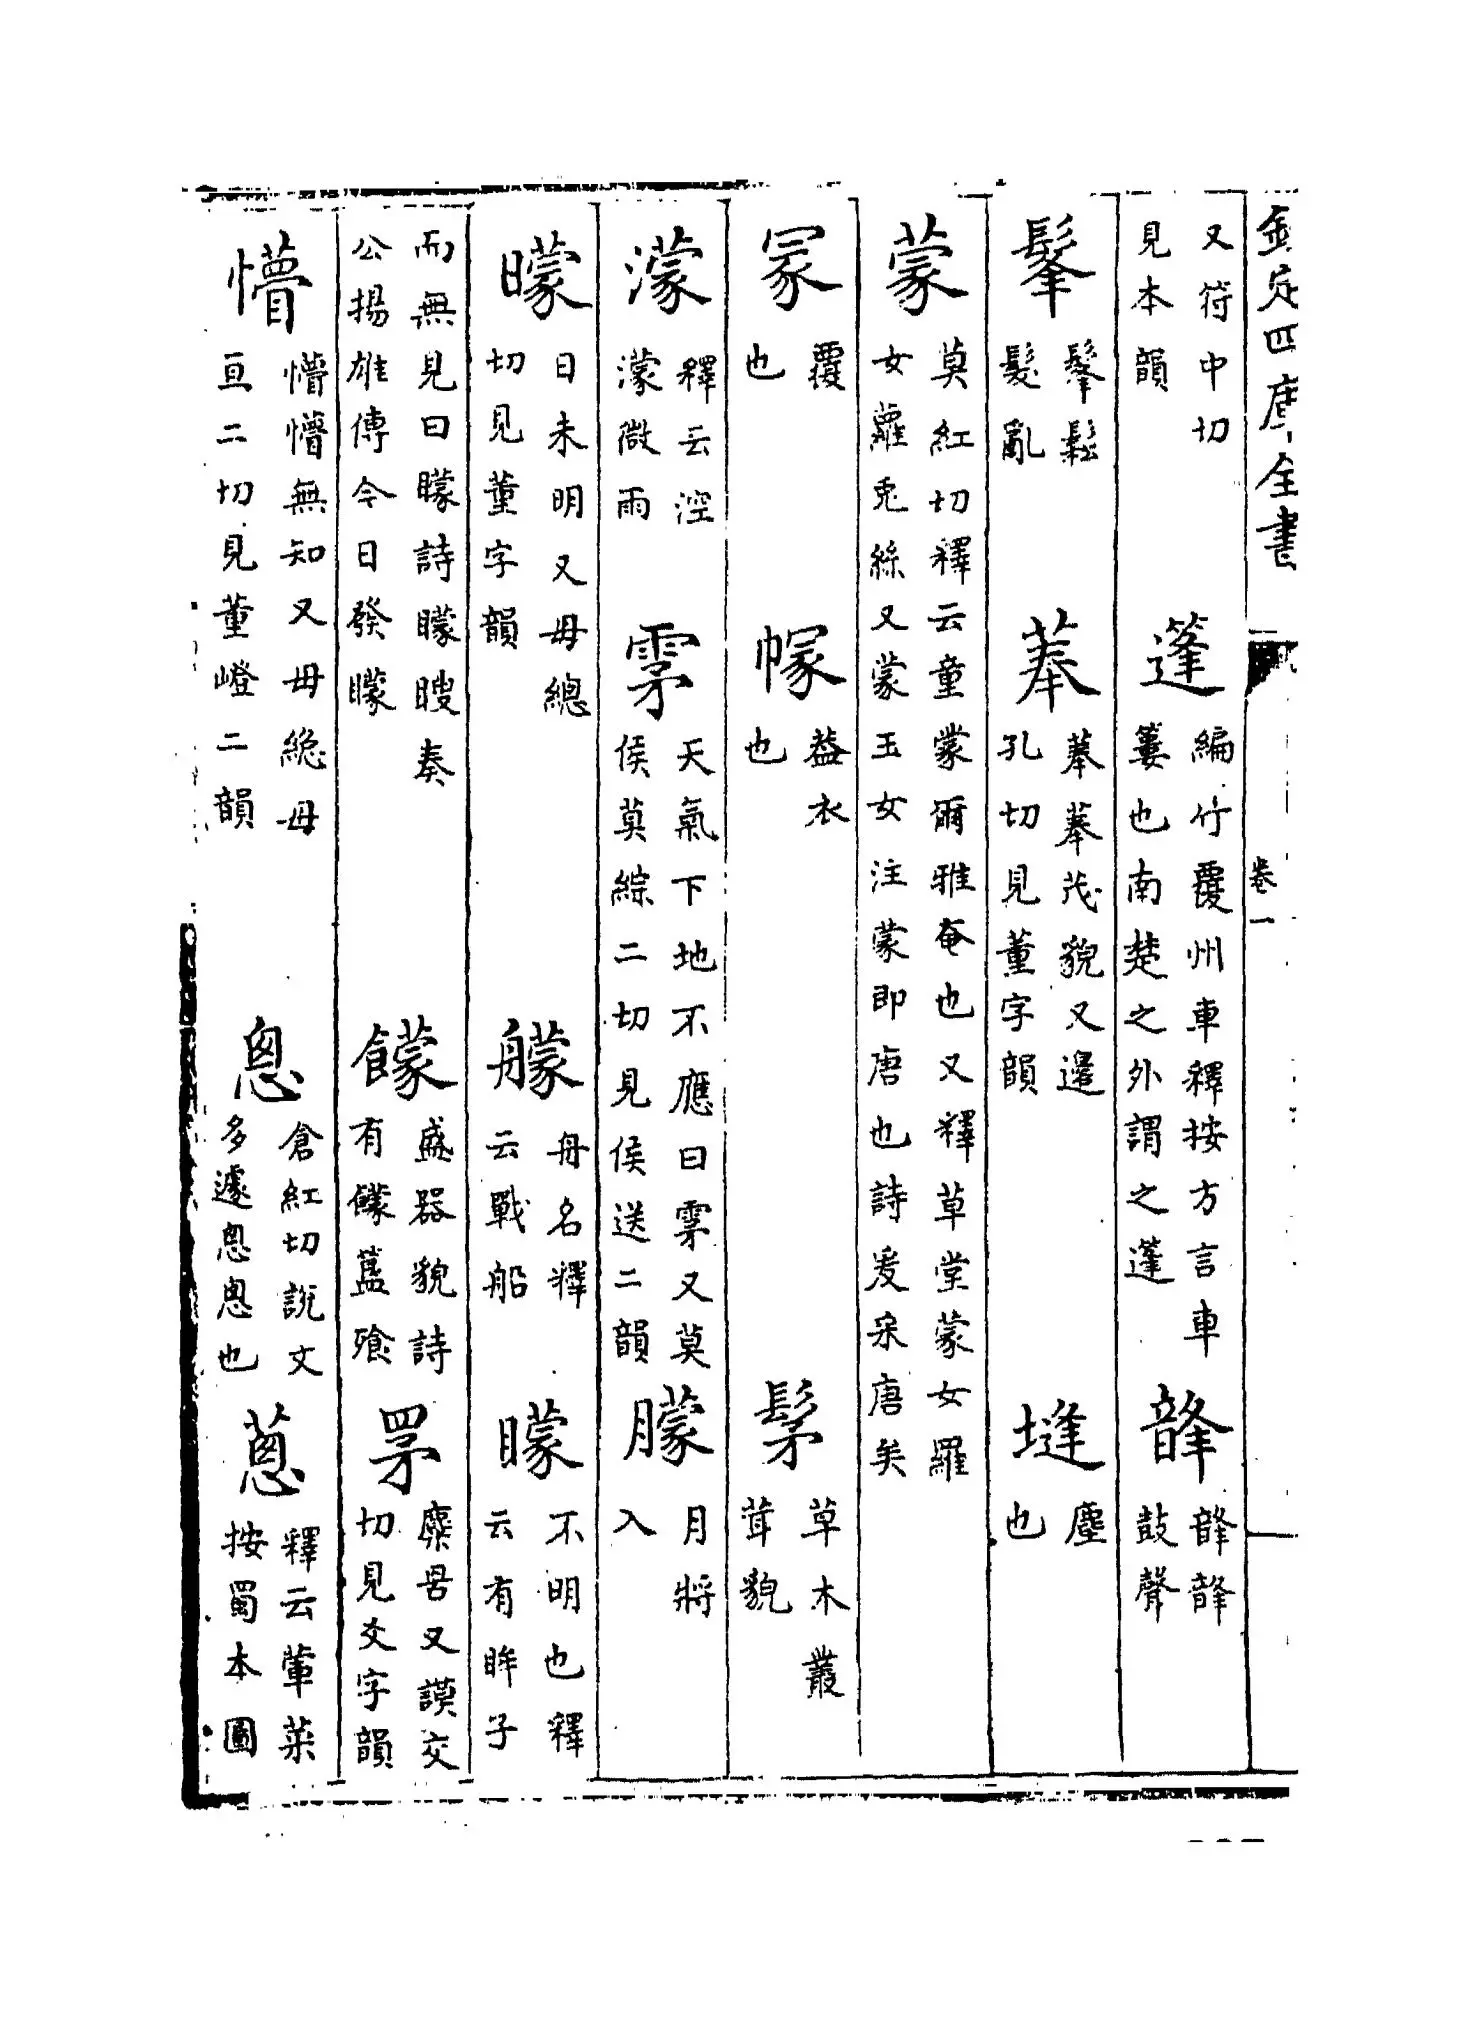 欽定四庫全書
卷一
又符中切見本韻 篷編竹覆州車釋按方言車簍也南楚之外謂之篷 韸韸韸鼓聲
髼髼鬆髮亂 菶菶菶茂貌又邊孔切見董字韻 塳塵也
蒙莫紅切釋云童蒙爾雅奄也又釋草堂蒙女羅女蘿兎絲又蒙玉女注蒙即唐也詩爰采唐矣
冡覆也 幏葢衣也 髳草木叢茸貌
濛釋云涳濛微雨 雺天氣下地不應曰雺又莫侯莫綜二切見侯送二韻 朦月將入
曚日未明又毋總切見董字韻 艨舟名釋云戰船 矇不明也釋云有眸子
而無見曰矇詩矇瞍奏公揚雄傳今日發矇 饛盛器貌詩有饛簋飱 罞麋罟又謨交切見爻字韻
懵懵懵無知又毋緫毋亘二切見董嶝二韻 怱倉紅切說文多遽怱怱也 蔥釋云葷菜按蜀本圖